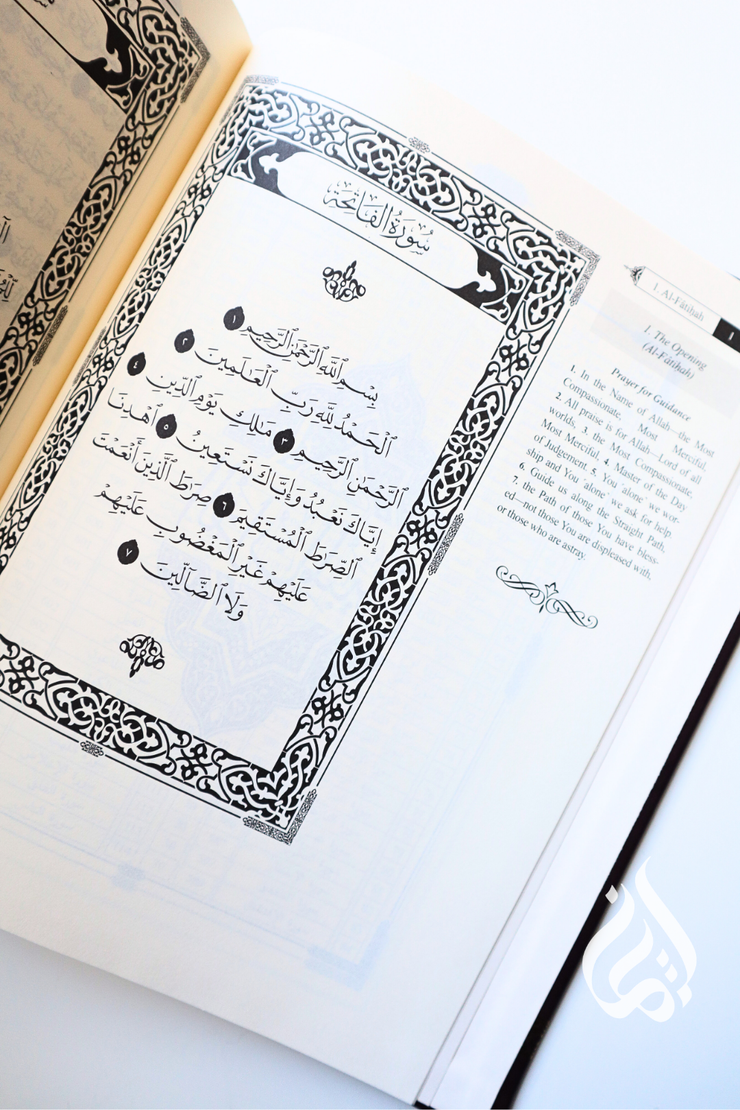 سُورَةُ الفَاتِحَةِ
بِسْمِ ٱللَّهِ ٱلرَّحْمَٰنِ ٱلرَّحِيمِ ١
ٱلْحَمْدُ لِلَّهِ رَبِّ ٱلْعَٰلَمِينَ ٢
ٱلرَّحْمَٰنِ ٱلرَّحِيمِ ٣ مَٰلِكِ يَوْمِ ٱلدِّينِ ٤
إِيَّاكَ نَعْبُدُ وَإِيَّاكَ نَسْتَعِينُ ٥ ٱهْدِنَا
ٱلصِّرَٰطَ ٱلْمُسْتَقِيمَ ٦ صِرَٰطَ ٱلَّذِينَ أَنْعَمْتَ
عَلَيْهِمْ غَيْرِ ٱلْمَغْضُوبِ عَلَيْهِمْ
وَلَا ٱلضَّآلِّينَ ٧
1 Al-Fātiḥah 1
1. The Opening
(Al-Fâtiḥah)
Prayer for Guidance
1. In the Name of Allah—the Most
Compassionate, Most Merciful.
2. All praise is for Allah—Lord of all
worlds, 3. the Most Compassionate,
Most Merciful, 4. Master of the Day
of Judgement. 5. You ˹alone˺ we wor-
ship and You ˹alone˺ we ask for help.
6. Guide us along the Straight Path,
7. the Path of those You have bless-
ed—not those You are displeased with,
or those who are astray.